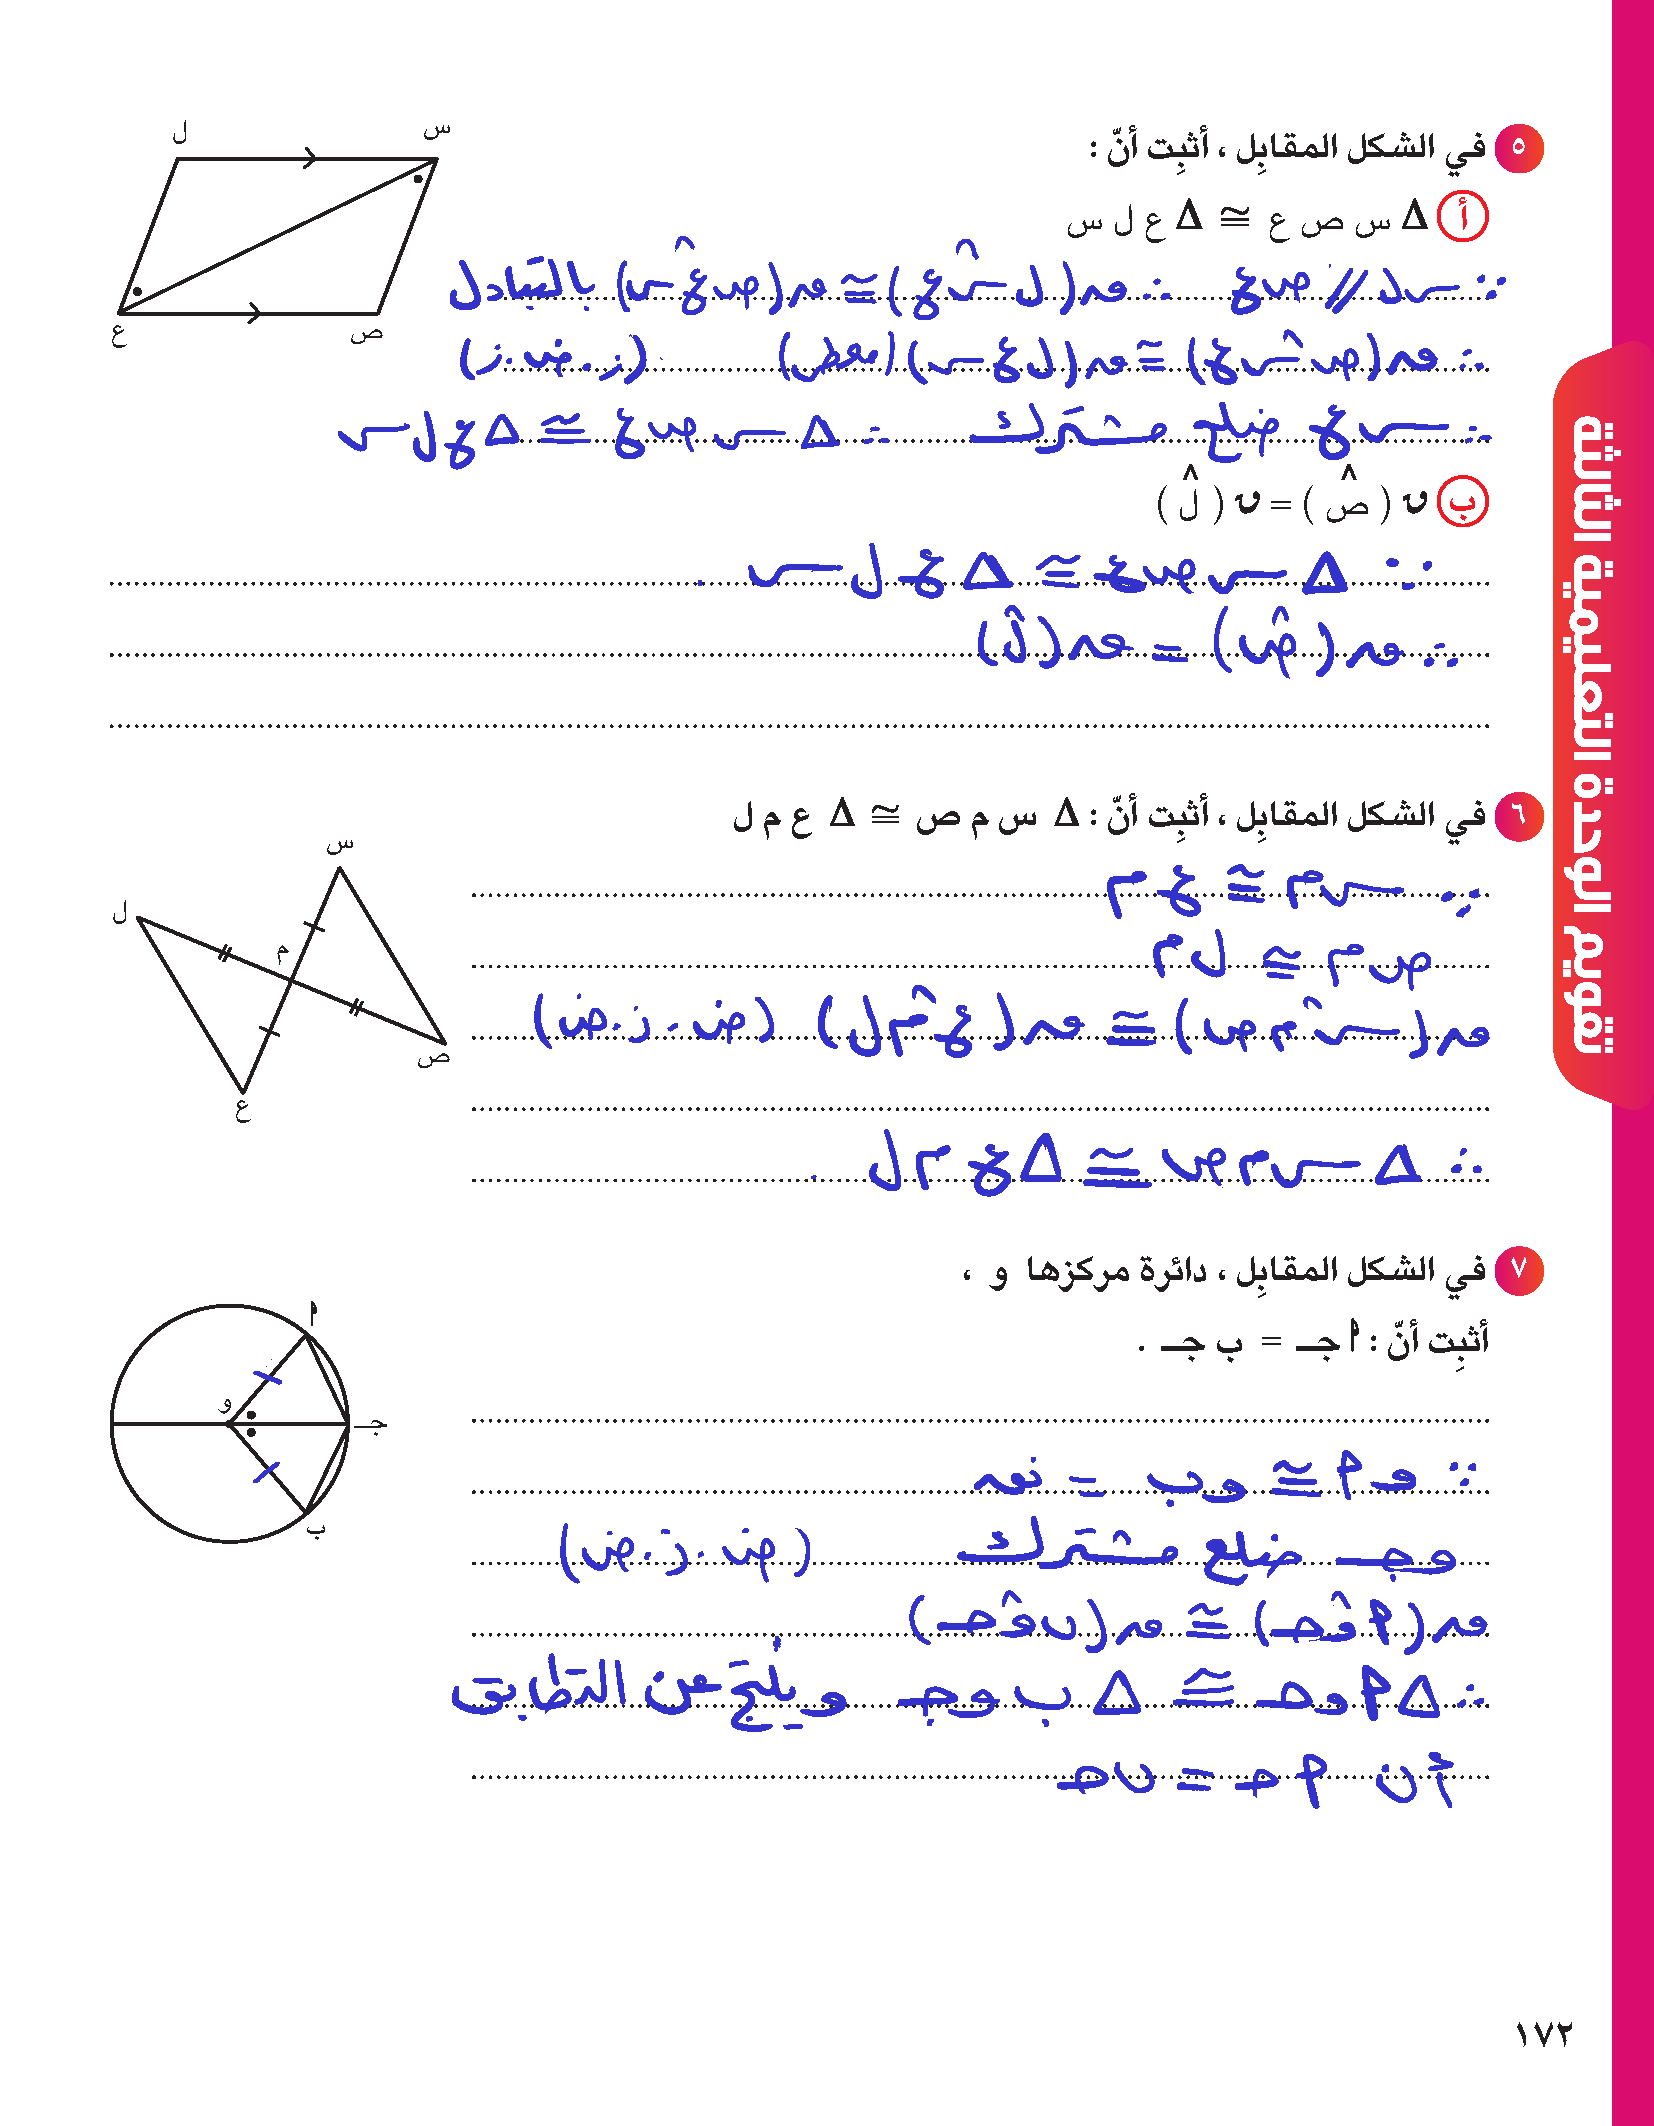 ٥ في الشكل المقابِل ، أثبِت أنّ :
أ Δ س ص ع ≅ Δ ع ل س
∵ س ل // ص ع ∴ ق(ل س^ ع) ≅ ق(ص ع^ س) بالتبادل
∴ ق(ص س^ ع) ≅ ق(ل ع س) (معطى) (ز.ض.ز)
∴ س ع ضلع مشترك ∴ Δ س ص ع ≅ Δ ع ل س
ب ق ( ص^ ) = ق ( ل^ )
∵ Δ س ص ع ≅ Δ ع ل س
∴ ق(ص^) = ق(ل^)
٦ في الشكل المقابِل ، أثبِت أنّ : Δ س م ص ≅ Δ ع م ل
∵ س م ≅ ع م
ص م ≅ ل م
ق(س م^ ص) ≅ ق(ع م^ ل) (ض.ز.ض)
∴ Δ س م ص ≅ Δ ع م ل
٧ في الشكل المقابِل ، دائرة مركزها و ،
أثبِت أنّ : أ جـ = ب جـ .
∵ و أ ≅ و ب = نق
و جـ ضلع مشترك (ض.ز.ض)
ق(أ و^ جـ) ≅ ق(ب و^ جـ)
∴ Δ أ و جـ ≅ Δ ب و جـ وينتج عن التطابق
أن أ جـ = ب جـ
س
ل
ع
ص
س
ل
م
ص
ع
أ
و
جـ
ب
تقويم الوحدة التعليمية الثالثة
١٧٢